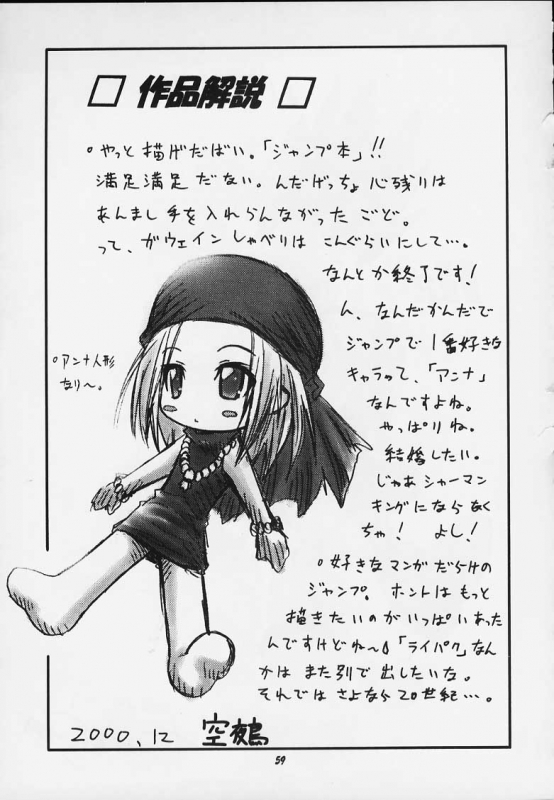 □ 作品解説 □
○やっと描げだばい。「ジャンプ本」!!
満足満足だない。んだげっちょ心残りは
あんまし手を入れらんながったごど。
って、ガウェインしゃべりはこんぐらいにして…。
なんとか終了です!
ん、なんだかんだで
ジャンプで1番好きな
キャラって、「アンナ」
なんですよね。
やっぱりね。
結婚したい。
じゃあシャーマン
キングにならなく
ちゃ!よし!
○アンナ人形
なり〜。
○好きなマンガだらけの
ジャンプ。ホントはもっと
描きたいのがいっぱいあった
んですけどね〜 「ライパク」なん
かはまた別で出したいな。
それではさよなら20世紀…。
2000.12 空鵺
59